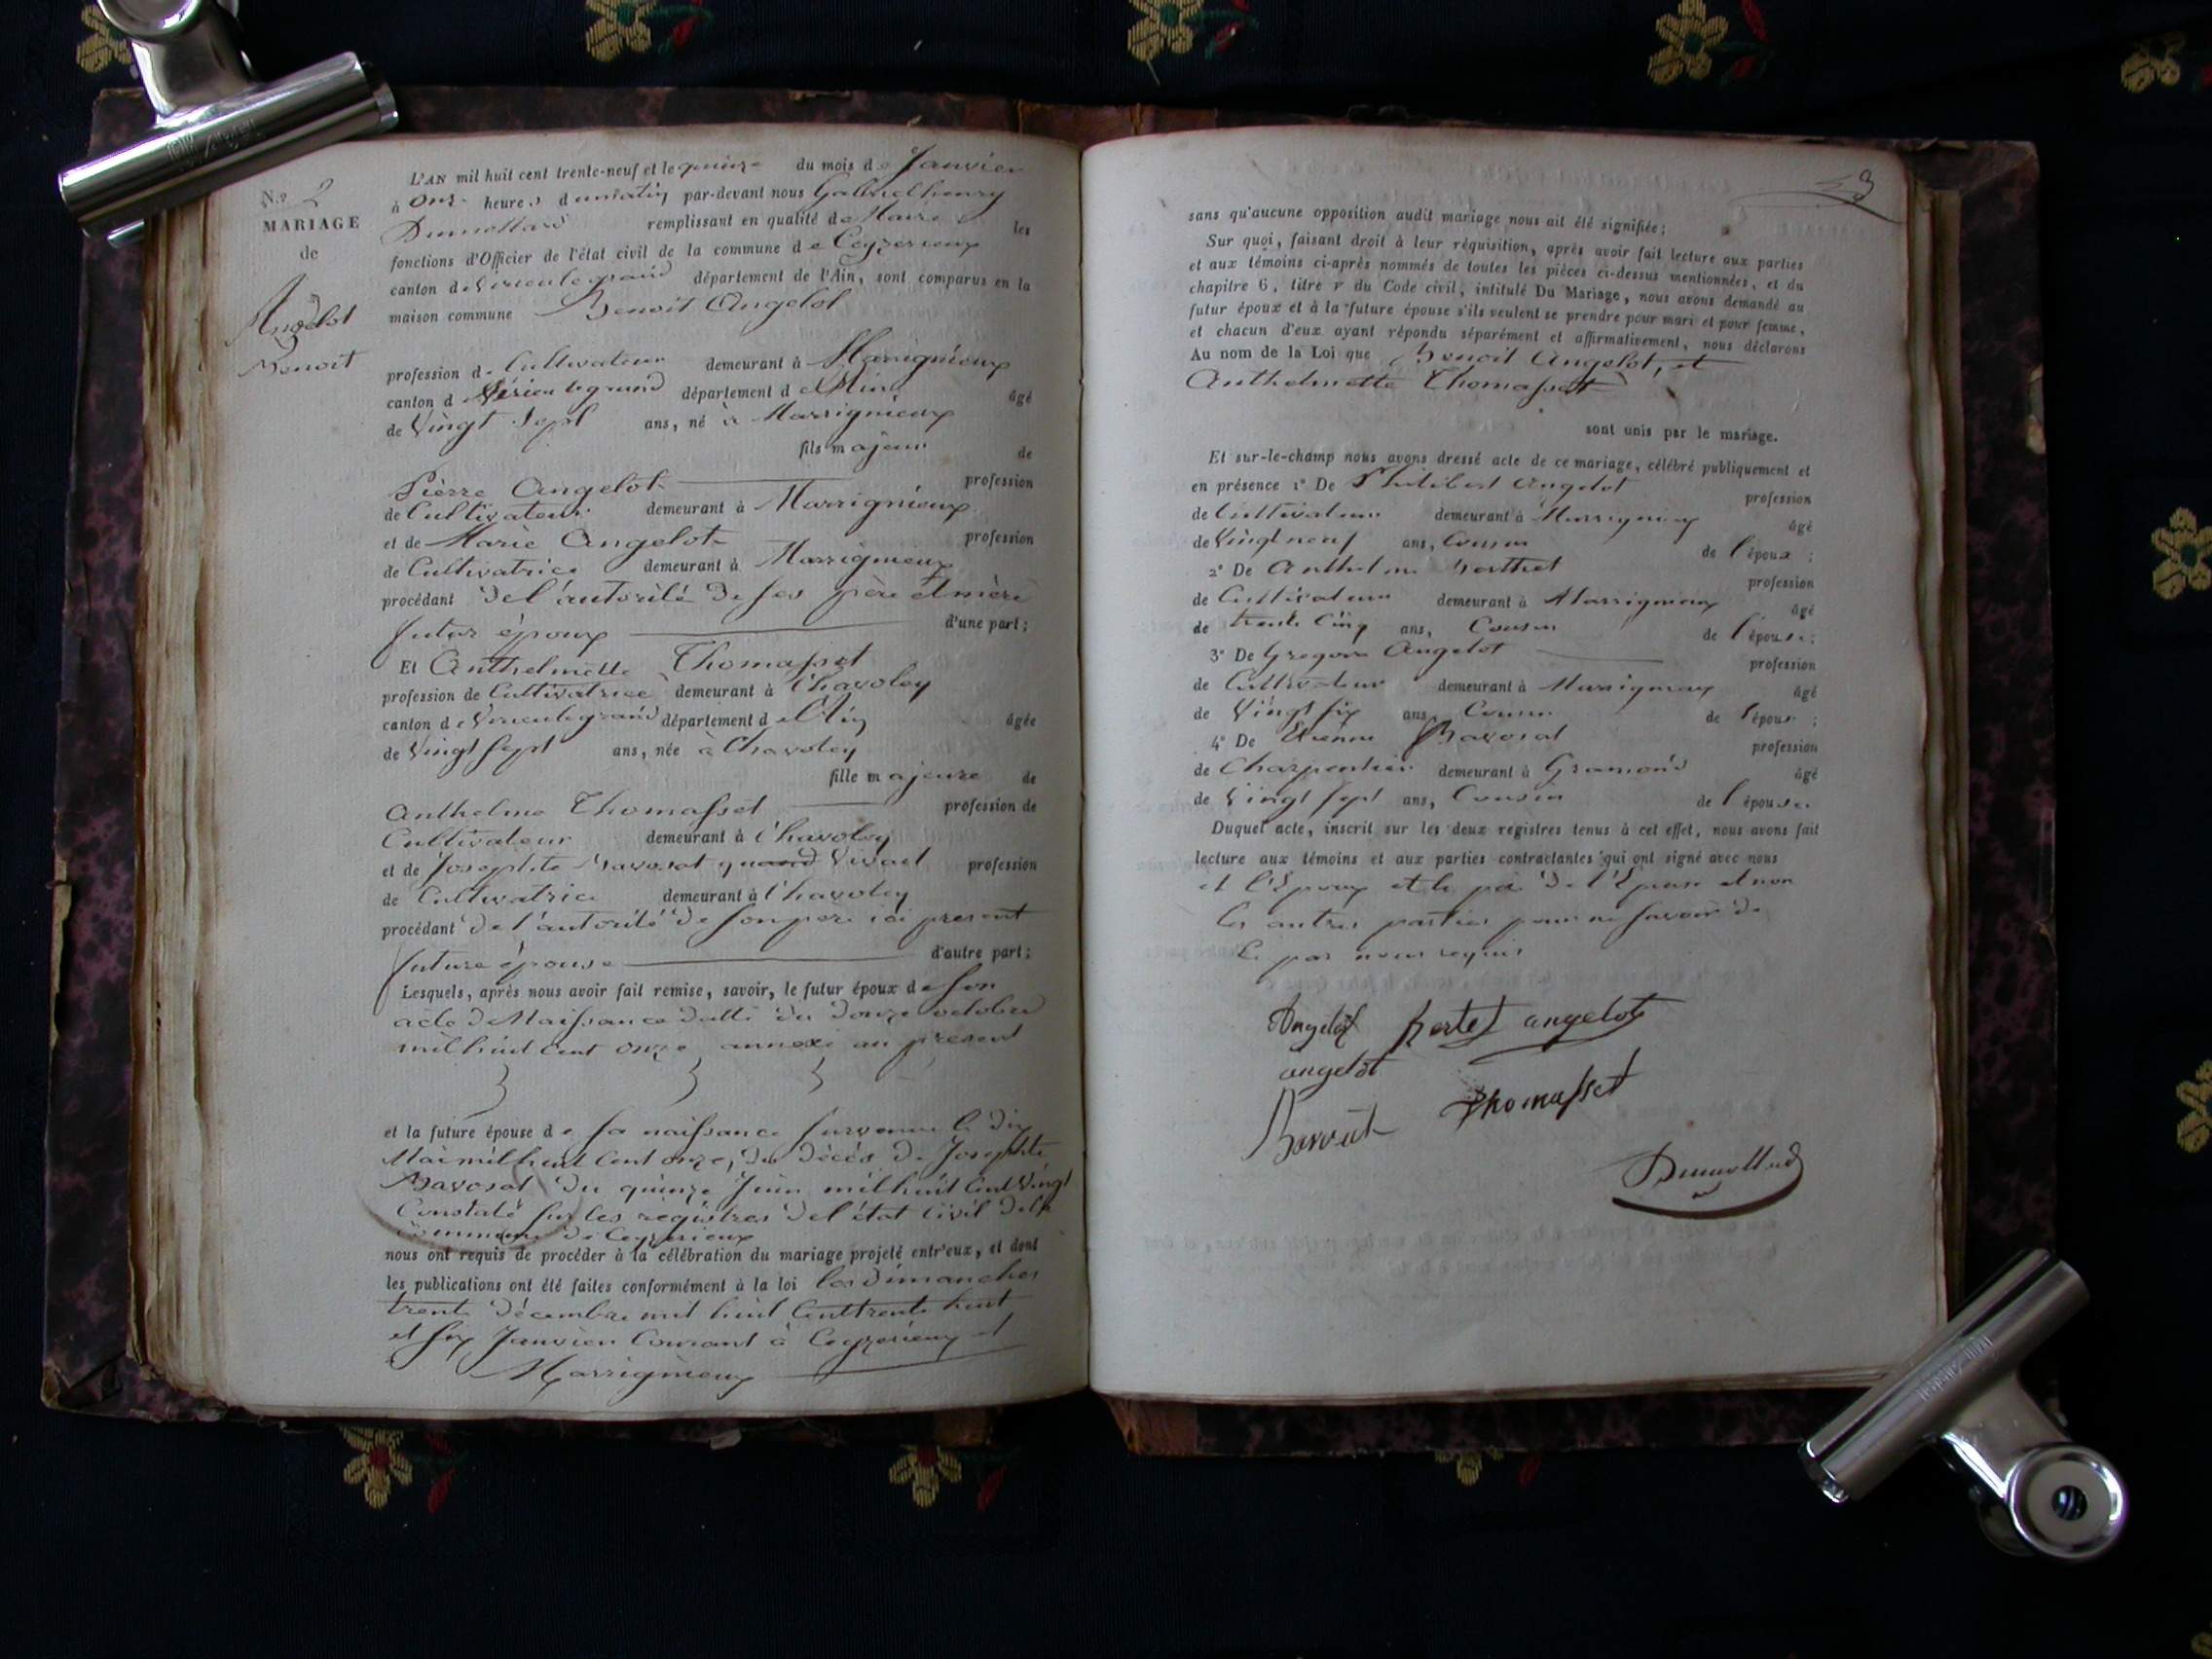 N.º 2
MARIAGE
de
Angelot
Benoit
L'AN mil huit cent trente-neuf et le quinze du mois de Janvier
à onze heures du matin par-devant nous Gabriel henry
Dumollard remplissant en qualité de Maire les
fonctions d'Officier de l'état civil de la commune de Ceyzerieux
canton de Virieu le grand département de l'Ain, sont comparus en la
maison commune Benoit Angelot
profession de Cultivateur demeurant à Marrignieux
canton de Virieu le grand département de l'Ain âgé
de Vingt Sept ans, né à Marrignieux
fils majeur de
Pierre Angelot profession
de Cultivateur demeurant à Marrignieux
et de Marie Angelot profession
de Cultivatrice demeurant à Marrignieux
procédant de l'autorité de ses père et mère
futur époux d'une part ;
Et Anthelmette Thomasset
profession de Cultivatrice demeurant à Chavoley
canton de Virieu le grand département de l'Ain âgée
de Vingt Sept ans, née à Chavoley
fille majeure de
Anthelme Thomasset profession de
Cultivateur demeurant à Chavoley
et de Josephte Bavosat quand Vivait profession
de Cultivatrice demeurant à Chavoley
procédant de l'autorité de son père ici present
future épouse d'autre part ;
Lesquels, après nous avoir fait remise, savoir, le futur époux de son
acte de Naissance datté du douze octobre
mil huit cent onze annexé au présent
et la future épouse de sa naissance survenue le dix
Mai mil huit cent onze, du décès de Josephte
Bavosat du quinze Juin mil huit cent Vingt
Constaté sur les registres de l'état Civil de la
commune de Ceyzerieux
nous ont requis de procéder à la célébration du mariage projeté entr'eux, et dont
les publications ont été faites conformément à la loi les dimanches
trente décembre mil huit Cent trente huit
et six Janvier Courant à Ceyzerieux et
Marrignieux
sans qu'aucune opposition audit mariage nous ait été signifiée ;
Sur quoi, faisant droit à leur réquisition, après avoir fait lecture aux parties
et aux témoins ci-après nommés de toutes les pièces ci-dessus mentionnées, et du
chapitre 6, titre v du Code civil, intitulé Du Mariage, nous avons demandé au
futur époux et à la future épouse s'ils veulent se prendre pour mari et pour femme,
et chacun d'eux ayant répondu séparément et affirmativement, nous déclarons
Au nom de la Loi que Benoit Angelot, et
Anthelmette Thomasset
sont unis par le mariage.
Et sur-le-champ nous avons dressé acte de ce mariage, célébré publiquement et
en présence 1º De Philibert Angelot profession
de Cultivateur demeurant à Marrignieux âgé
de Vingt neuf ans, Cousin de l'époux ;
2º De Anthelme Berthet profession
de Cultivateur demeurant à Marrignieux âgé
de trente Cinq ans, Cousin de l'épouse ;
3º De Gregoire Angelot profession
de Cultivateur demeurant à Marrignieux âgé
de Vingt six ans, Cousin de l'époux ;
4º De Etienne Bavosat profession
de Charpentier demeurant à Gramond âgé
de Vingt sept ans, Cousin de l'épouse
Duquel acte, inscrit sur les deux registres tenus à cet effet, nous avons fait
lecture aux témoins et aux parties contractantes qui ont signé avec nous
et l'Epoux et le père de l'Epouse et non
les autres parties pour ne savoir de
ce par nous requis
Angelot Bertet angelot
angelot
Thomasset
Dumollard